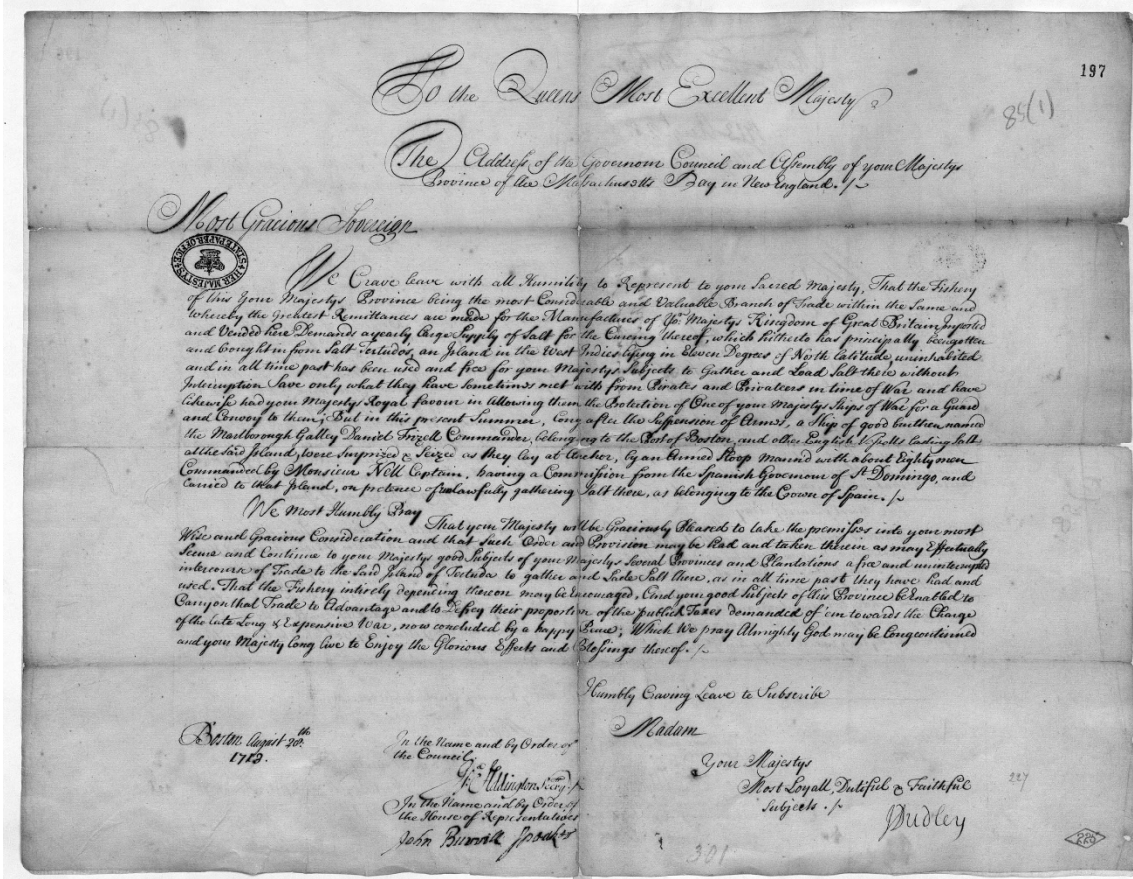 197
85(1)
To the Queens Most Excellent Majesty
The Address of the Governour Council and Assembly of your Majestys
Province of the Massachusetts Bay in New England. /~
Most Gracious Sovereign
HER MAJESTY'S STATE PAPER OFFICE
We Crave leave with all Humility to Represent to your Sacred Majesty, That the Fishery
of this Your Majestys Province being the most Considerable and Valuable Branch of Trade within the Same and
whereby the Greatest Remittances are made for the Manufactures of Yor. Majestys Kingdom of Great Britain Imported
and Vended here Demands a yearly large Supply of Salt for the Curing thereof, which hitherto has principally been gotten
and bought in from Salt Tertudos, an Island in the West Indies lying in Eleven Degrees of North Latitude uninhabited
and in all time past has been used and free for your Majestys Subjects to Gather and Load Salt there without
Interruption Save only what they have Sometimes met with from Pirates and Privateers in time of War and have
likewise had your Majestys Royal favour in Allowing them the Protection of One of your Majestys Ships of War for a Guard
and Convoy to them; But in this present Summer, long after the Suspension of Armes, a Ship of good burthen named
the Marlborough Galley Daniel Frizell Commander, belonging to the Port of Boston, and other English Vessells lading Salt
at the said Island, were Surprized & Seized as they lay at Anchor, by an Armed Sloop Mann'd with about Eighty men
Commanded by Monsieur Noll Captain, having a Commission from the Spanish Governour of St. Domingo, and
Carried to that Island, on pretence of unlawfully gathering Salt there, as belonging to the Crown of Spain. /~
We Most Humbly Pray
That your Majesty will be Graciously Pleased to take the premisses into your most
Wise and Gracious Consideration and that such Order and Provision may be had and taken therein as may Effectually
Secure and Continue to your Majestys good Subjects of your Majestys Several Provinces and Plantations a free and uninterrupted
intercourse of Trade to the Said Island of Tertuda to gather and Lade Salt there, as in all time past they have had and
used. That the Fishery intirely depending thereon may be Encouraged, And your good Subjects of this Province be Enabled to
Carry on that Trade to Advantage and to Defrey their proportion of the publick Taxes demanded of 'em towards the Charge
of the late Long & Expensive War, now concluded by a happy Peace; Which We pray Almighty God may be Long continued
and your Majesty long live to Enjoy the Glorious Effects and Blessings thereof. /~
Humbly Craving Leave to Subscribe
Madam
Your Majestys
Most Loyall, Dutiful & Faithful
Subjects. /~
JDudley
Boston August 20th.
1713.
In the Name and by Order of
the Council,
Isa Addington Secry. /~
In the Name and by Order of
the House of Representatives
John Burrill Speakr
227
301
225